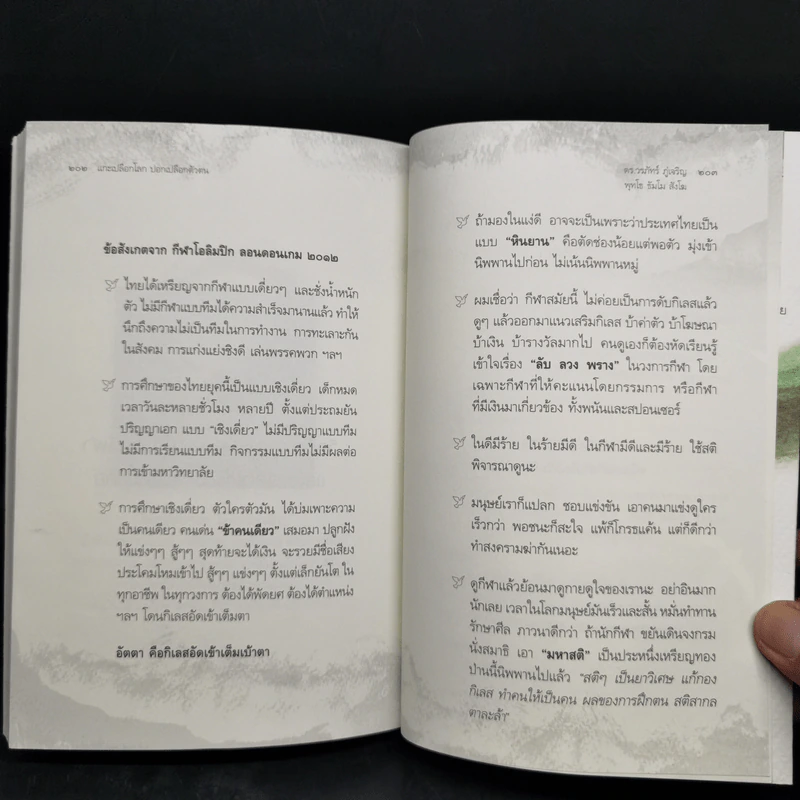 ๒๐๒ แกะเปลือกโลก ปอกเปลือกตัวตน
ข้อสังเกตจาก กีฬาโอลิมปิก ลอนดอนเกม ๒๐๑๒
ไทยได้เหรียญจากกีฬาแบบเดี่ยวๆ และชั่งน้ำหนัก
ตัว ไม่มีกีฬาแบบทีมได้ความสำเร็จมานานแล้ว ทำให้
นึกถึงความไม่เป็นทีมในการทำงาน การทะเลาะกัน
ในสังคม การแก่งแย่งชิงดี เล่นพรรคพวก ฯลฯ
การศึกษาของไทยยุคนี้เป็นแบบเชิงเดี่ยว เด็กหมด
เวลาวันละหลายชั่วโมง หลายปี ตั้งแต่ประถมยัน
ปริญญาเอก แบบ "เชิงเดี่ยว" ไม่มีปริญญาแบบทีม
ไม่มีการเรียนแบบทีม กิจกรรมแบบทีมไม่มีผลต่อ
การเข้ามหาวิทยาลัย
การศึกษาเชิงเดี่ยว ตัวใครตัวมัน ได้บ่มเพาะความ
เป็นคนเดียว คนเด่น "ข้าคนเดียว" เสมอมา ปลูกฝัง
ให้แข่งๆๆ สู้ๆๆ สุดท้ายจะได้เงิน จะรวยมีชื่อเสียง
ประโคมโหมเข้าไป สู้ๆๆ แข่งๆๆ ตั้งแต่เล็กยันโต ใน
ทุกอาชีพ ในทุกวงการ ต้องได้พัดยศ ต้องได้ตำแหน่ง
ฯลฯ โดนกิเลสอัดเข้าเต็มตา
อัตตา คือกิเลสอัดเข้าเต็มเบ้าตา
ดร.วรภัทร์ ภู่เจริญ ๒๐๓
พุทโธ ธัมโม สังโฆ
ถ้ามองในแง่ดี อาจจะเป็นเพราะว่าประเทศไทยเป็น
แบบ "หินยาน" คือตัดช่องน้อยแต่พอตัว มุ่งเข้า
นิพพานไปก่อน ไม่เน้นนิพพานหมู่
ผมเชื่อว่า กีฬาสมัยนี้ ไม่ค่อยเป็นการดับกิเลสแล้ว
ดูๆ แล้วออกมาแนวเสริมกิเลส บ้าค่าตัว บ้าโฆษณา
บ้าเงิน บ้ารางวัลมากไป คนดูเองก็ต้องหัดเรียนรู้
เข้าใจเรื่อง "ลับ ลวง พราง" ในวงการกีฬา โดย
เฉพาะกีฬาที่ให้คะแนนโดยกรรมการ หรือกีฬา
ที่มีเงินมาเกี่ยวข้อง ทั้งพนันและสปอนเซอร์
ในดีมีร้าย ในร้ายมีดี ในกีฬามีดีและมีร้าย ใช้สติ
พิจารณาดูนะ
มนุษย์เราก็แปลก ชอบแข่งขัน เอาคนมาแข่งดูใคร
เร็วกว่า พอชนะก็สะใจ แพ้ก็โกรธแค้น แต่ก็ดีกว่า
ทำสงครามฆ่ากันเนอะ
ดูกีฬาแล้วย้อนมาดูกายดูใจของเรานะ อย่าอินมาก
นักเลย เวลาในโลกมนุษย์มันเร็วและสั้น หมั่นทำทาน
รักษาศีล ภาวนาดีกว่า ถ้านักกีฬา ขยันเดินจงกรม
นั่งสมาธิ เอา "มหาสติ" เป็นประหนึ่งเหรียญทอง
ป่านนี้นิพพานไปแล้ว "สติๆ เป็นยาวิเศษ แก้กอง
กิเลส ทำคนให้เป็นคน ผลของการฝึกตน สติสากล
ตาละล้า"
ย